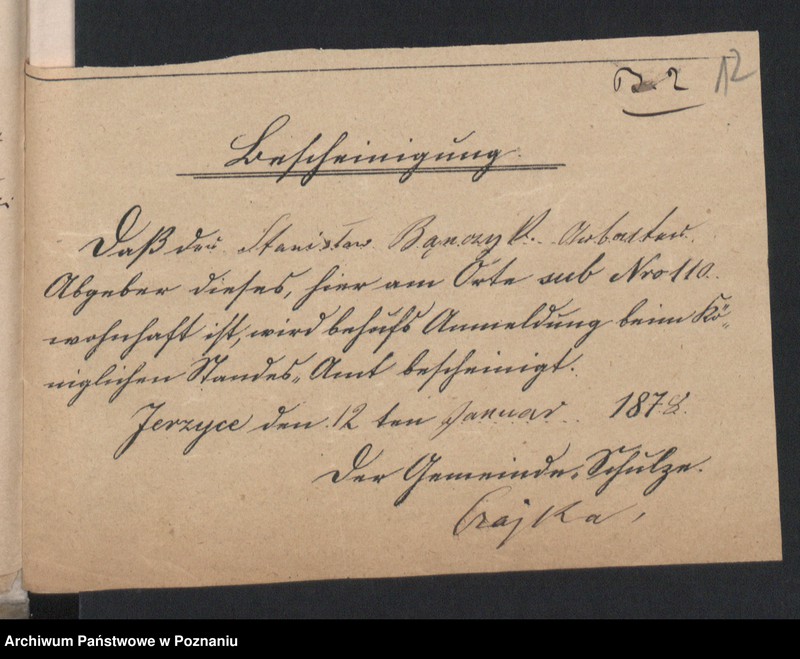 B. 2 12
Bescheinigung.
Daß der Stanislaw Bączyk. Arbeiter.
Abgeber dieses, hier am Orte sub Nro 110.
wohnhaft ist, wird behufs Anmeldung beim Kö„
niglichen Standes„Amt bescheinigt.
Jerzyce den 12 ten Januar 1878.
Der Gemeinde„Schulze.
Czajka
Archiwum Państwowe w Poznaniu